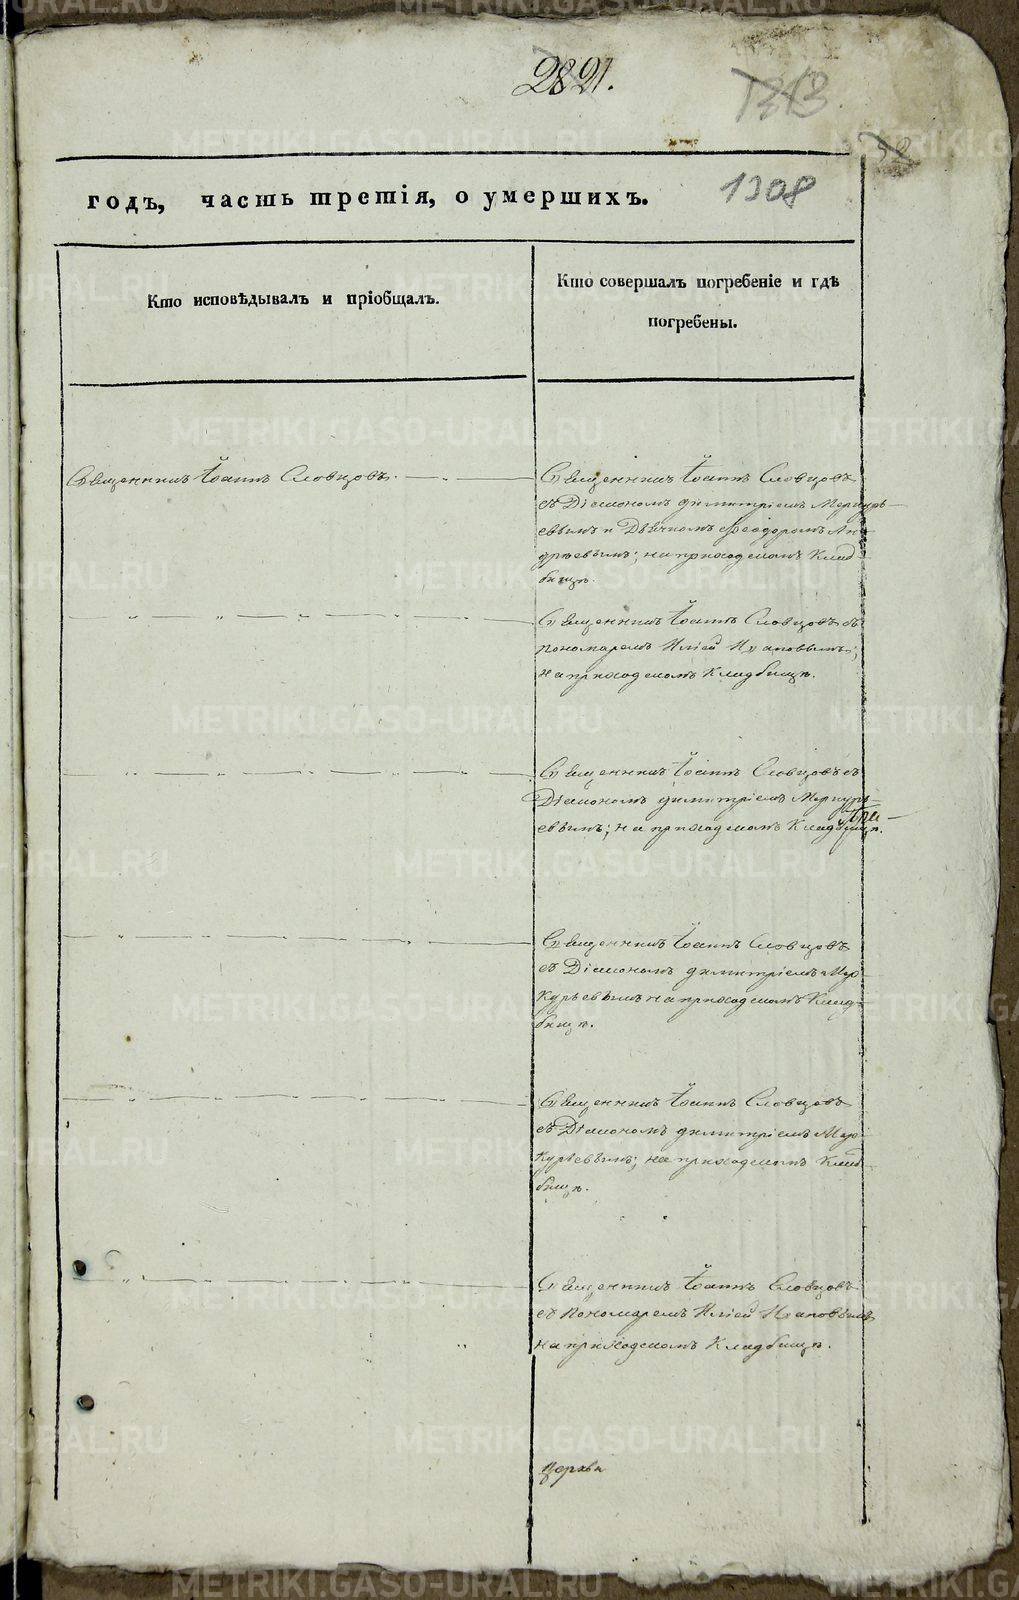 2821.
1313
58
годъ, часть третія, о умершихъ.
1308
Кто исповѣдывалъ и пріобщалъ.
Кто совершалъ погребеніе и гдѣ
погребены.
Священникъ Іоаннъ Словцовъ.
Священникъ Іоаннъ Словцовъ
съ Діакономъ Димитріемъ Меркурь-
евымъ и Дьячкомъ Ѳеодоромъ Ан-
дреевымъ; на приходскомъ Клад-
бищѣ.
Священникъ Іоаннъ Словцовъ съ
пономаремъ Иліей
на приходскомъ Кладбищѣ.
Священникъ Іоаннъ Словцовъ съ
Діакономъ Димитріемъ Меркурь-
евымъ; на приходскомъ Кладбищѣ.
Священникъ Іоаннъ Словцовъ
съ Діакономъ Димитріемъ Мер-
курьевымъ на приходскомъ Клад-
бищѣ.
Священникъ Іоаннъ Словцовъ
съ Діакономъ Димитріемъ Мер-
курьевымъ; на приходскомъ Клад-
бищѣ.
Священникъ Іоаннъ Словцовъ
съ Пономаремъ Иліей
на приходскомъ Кладбищѣ.
Церкви
METRIKI.GASO-URAL.RU